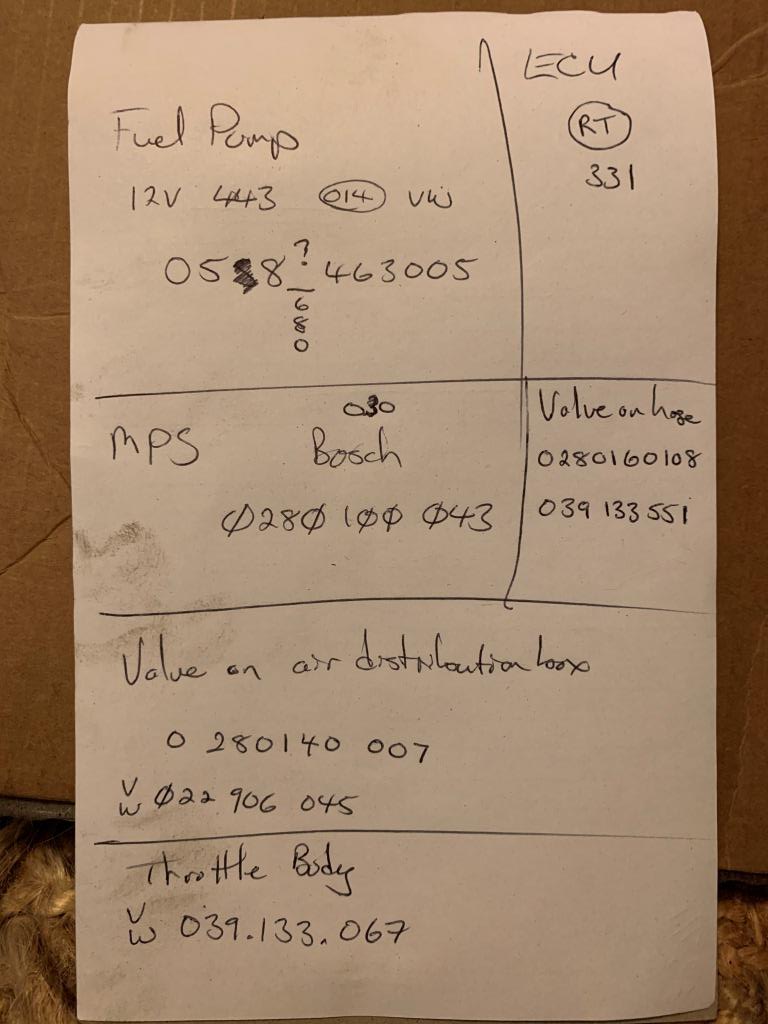 Fuel Pump
12V 443 014 VW
?
05 8_463005
6
8
0
ECU
RT
331
MPS
030
Bosch
Ø28Ø 1ØØ Ø43
Valve on hose
0280160108
039 133 551
Valve on air distribution box
0 280140 007
VW Ø22 906 045
Throttle Body
VW 039.133.067